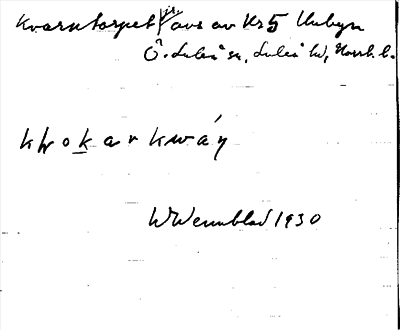 Kvarntorpet avs av Kr 5 Unbyn
Ö. Luleå sn, Luleå tu, Norrb. l.
kwokar kwán
W Wennblad 1930